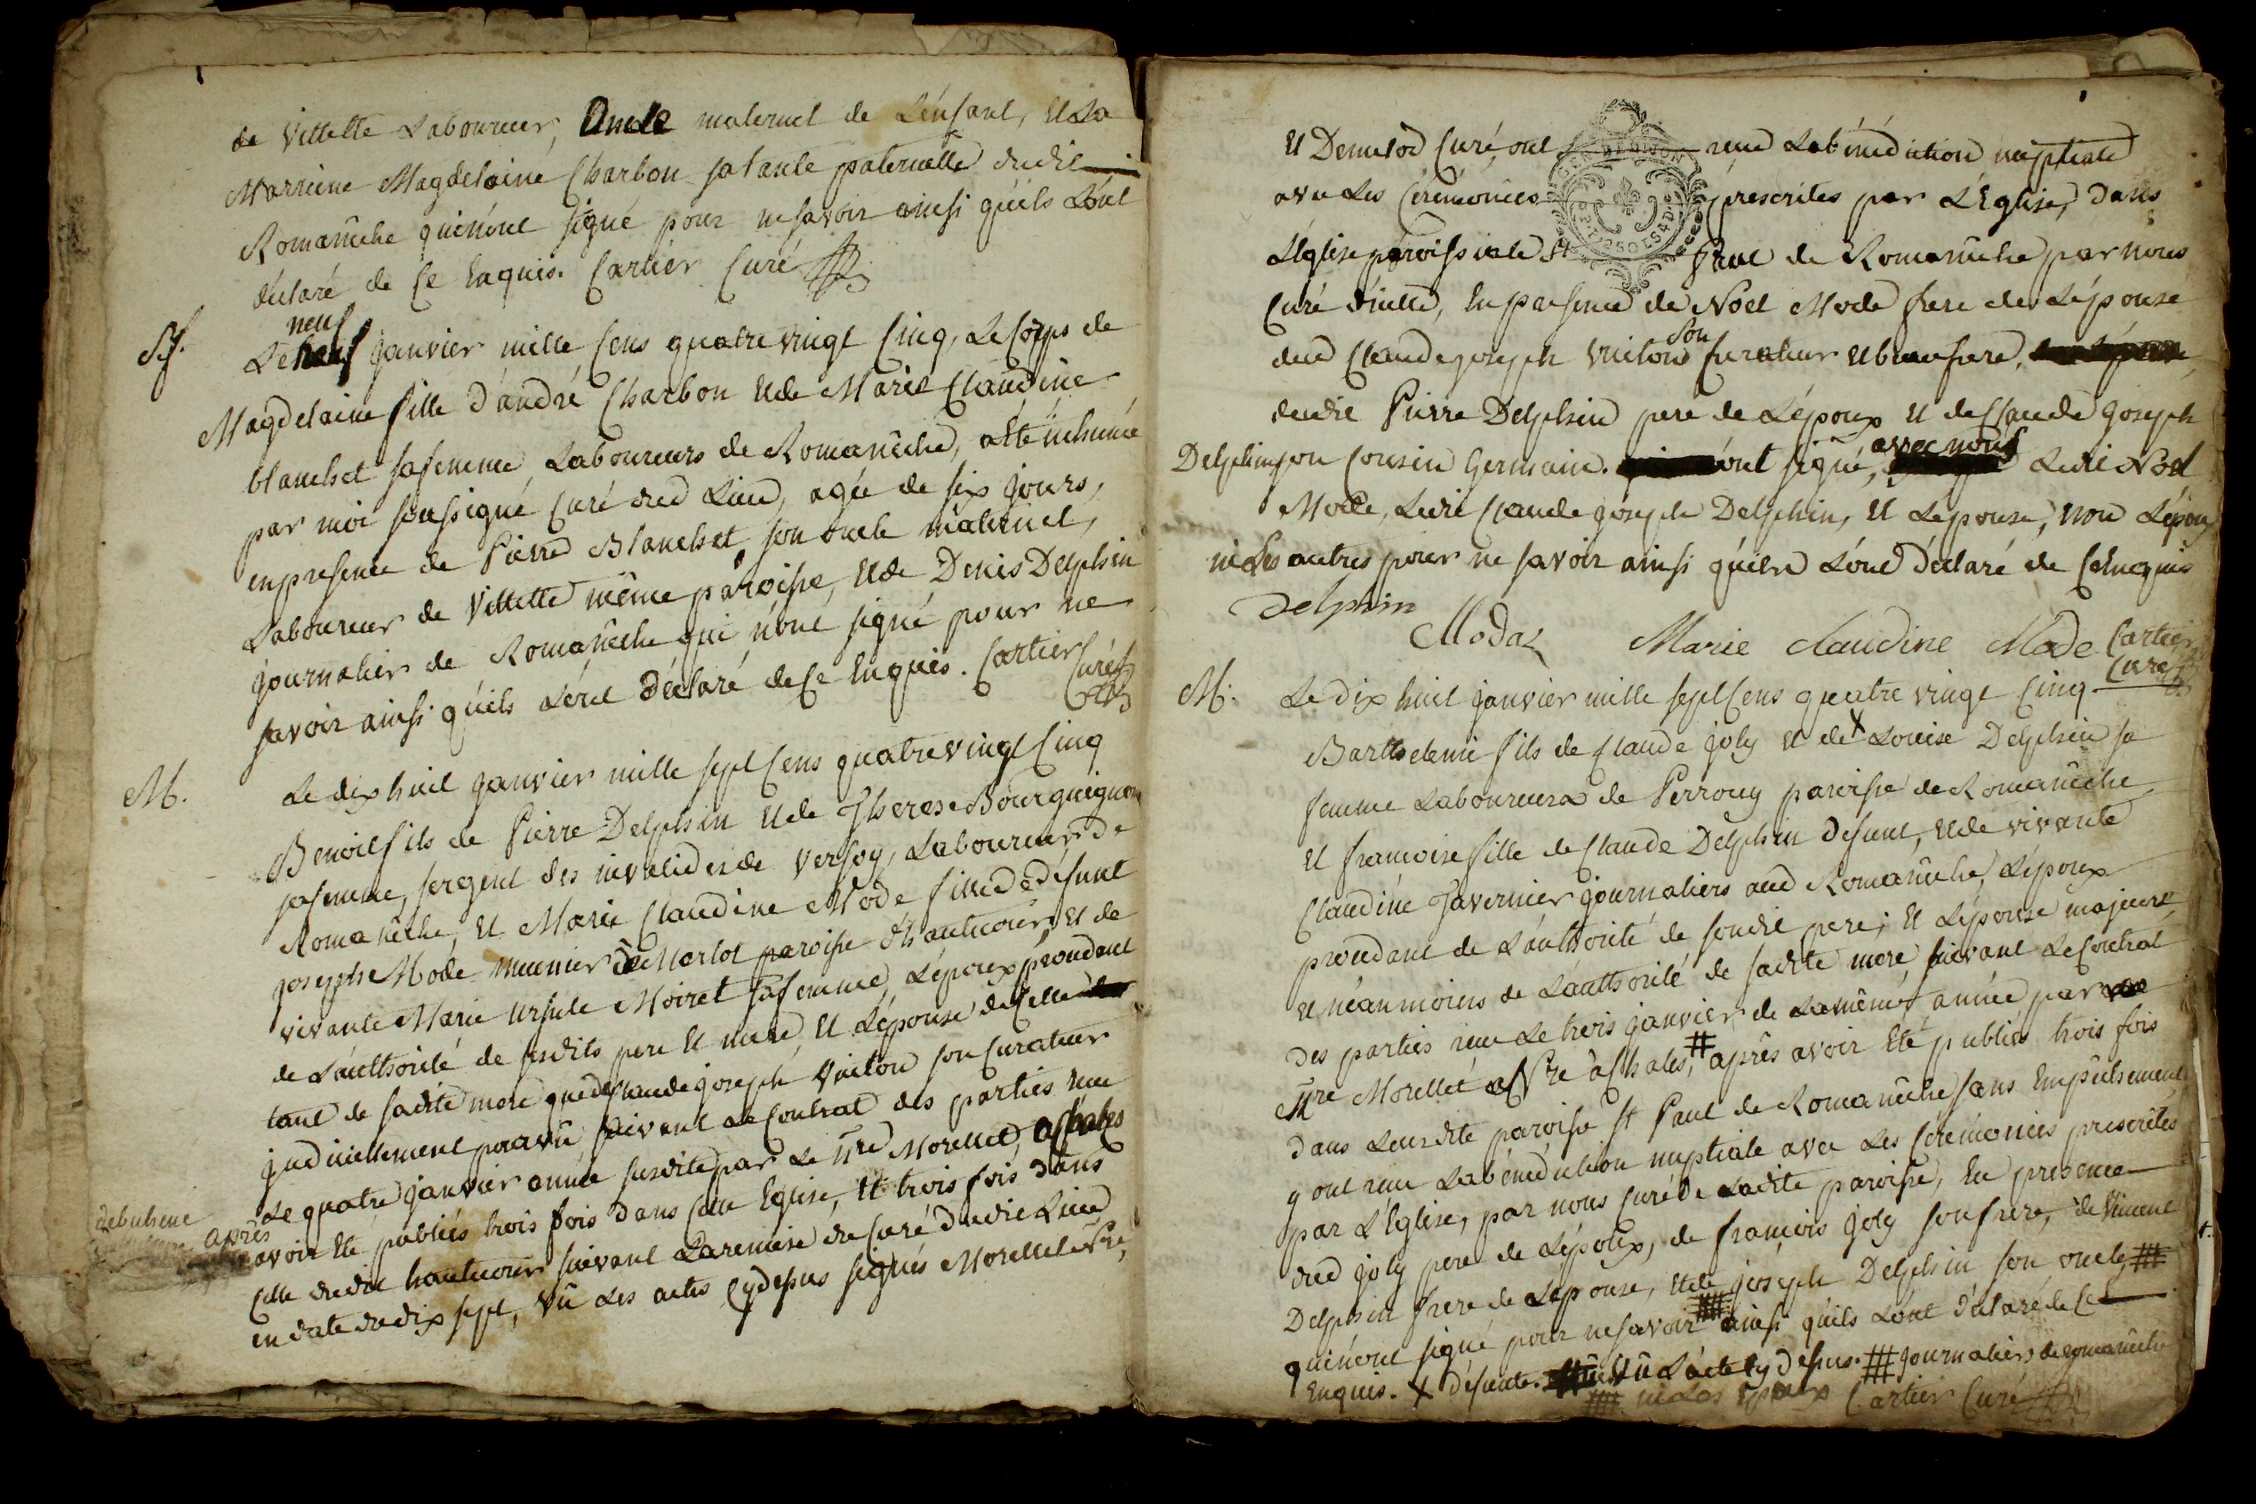 de Villette Laboureur, Oncle maternel de L'enfant, et La
Marreine Magdelaine Charbon sa tante paternelle dudit
Romanêche qui n'ont signé pour ne savoir ainsi qu'ils L'ont
déclaré de Ce Enquis. Cartier Curé
Sp.
neuf
Le neuf janvier mille Cens quatre vingt Cinq, Le Corps de
Magdelaine fille d'andré Charbon et de Marie Claudine
blanchet sa femme, Laboureurs de Romanêche, a été inhumé
par moi soussigné Curé dud Lieu, agée de six jours,
en presence de Pierre Blanchet son oncle maternel,
Laboureur de Villette même paroisse, et de Denis Delphin
journalier de Romanêche qui n'ont signé pour ne
savoir ainsi qu'ils L'ont déclaré de Ce Enquis. Cartier
Curé
M.
Le dix huit janvier mille sept Cens quatre vingt Cinq
Benoit fils de Pierre Delphin et de Therese Bourguignon
sa femme, sergent des invalides de Versoy, Laboureur de
Romanêche, et Marie Claudine Mode fille de défunt
joseph Mode meunier de Merlot paroisse d'hautecour, et de
vivante Marie Ursule Moiret sa femme, L'époux procédant
de L'authorité de sesdits pere et mere, et L'épouse de Celle
tant de sadite mere que de Claude joseph Vuiton son Curateur
judiciellement pourvû suivant Le Contrat des parties reçu
Le quatre janvier année susdite par Le Sre Morellet,
après
avoir été publiés trois fois dans Cette Eglise, et trois fois dans
Celle dudit hautecour suivant La remise du Curé dudit Lieu
en date du dix sept, vû Les actes cy dessus signés Morellet Nre,
et Demetod Curé, ont reçu La bénédiction nuptiale
avec Les Cérémonies prescrites par L'Eglise, dans
L'Eglise paroissiale St Paul de Romanêche par nous
Curé d'icelle, En presence de Noel Mode frere de L'épouse
son
dud Claude joseph Vuiton Curateur et beaufrere,
dudit Pierre Delphin pere de L'époux et de Claude joseph
Delphin son Cousin Germain. ont signé, avec nous Ledit Noel
Mode, Ledit Claude joseph Delphin, et L'épouse, non L'époux
ni Les autres pour ne savoir ainsi qu'ils L'ont déclaré de Ce Enquis
Delphin
Modaz Marie Claudine Mode Cartier
Curé
M.
Le dix huit janvier mille sept Cens quatre vingt Cinq
Barthelemi fils de Claude Joly et de X Louise Delphin sa
femme Laboureurs de Perrouy paroisse de Romanêche
et francoise fille de Claude Delphin defunt, et de vivante
Claudine Tavernier journaliers aud Romanêche, L'époux
procédant de L'authorité de sondit pere; et L'épouse majeure,
et néanmoins de L'authorité de sadite mere suivant Le Contrat
des parties reçu Le trois janvier de La même année par
Sre Morellet Nre # après avoir été publiés trois fois
dans Leurdite paroisse St Paul de Romanêche sans Empêchement
y ont reçu La bénédiction nuptiale avec Les Cérémonies prescrites
par L'Eglise, par nous Curé de Ladite paroisse, En presence
dud Joly pere de L'époux, de françois Joly son frere, de Vincent
Delphin frere de L'épouse, et de joseph Delphin son oncle #
qui n'ont signé pour ne savoir ## ainsi qu'ils L'ont déclaré de Ce
Enquis. X défunte. # vû L'acte cy dessus. # journaliers de romanêche
## ni Les Epoux Cartier Curé